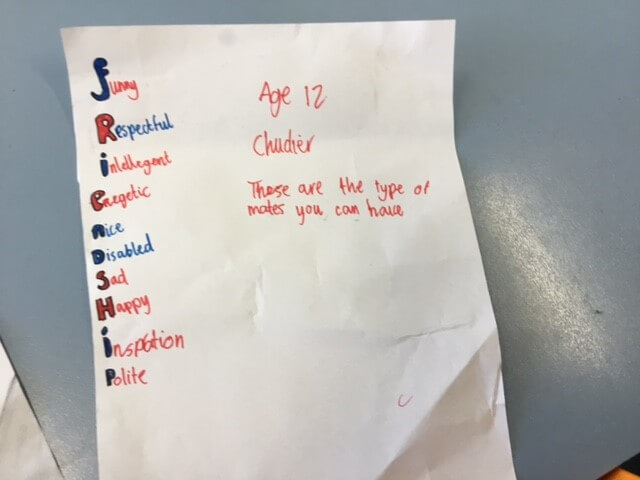 Funny
Respectful
intellegent
Enegetic
nice
Disabled
Sad
Happy
inspotion
Polite
Age 12
Chudier
These are the type of
mates you can have